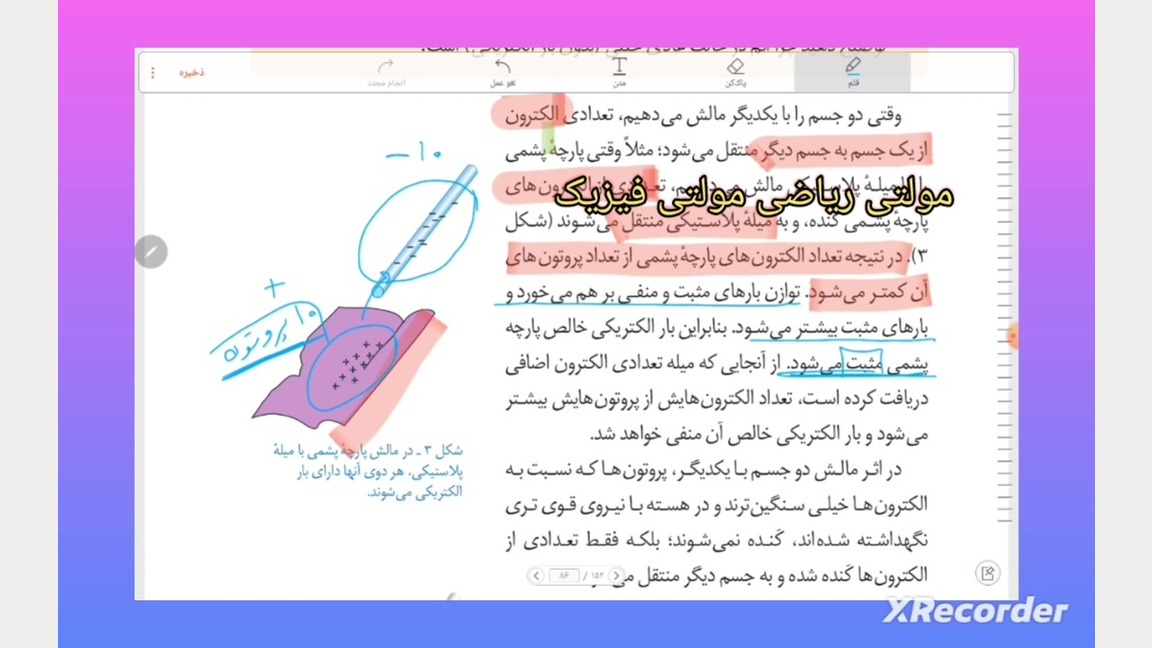 ذخیره
انجام مجدد
لغو عمل
متن
پاک‌کن
قلم
وقتی دو جسم را با یکدیگر مالش می‌دهیم، تعدادی الکترون
از یک جسم به جسم دیگر منتقل می‌شود؛ مثلاً وقتی پارچهٔ پشمی
مولتی ریاضی مولتی فیزیک
پارچهٔ پشمی کنده، و به میلهٔ پلاستیکی منتقل می‌شوند (شکل
۳). در نتیجه تعداد الکترون‌های پارچهٔ پشمی از تعداد پروتون‌های
آن کمتر می‌شود. توازن بارهای مثبت و منفی بر هم می‌خورد و
بارهای مثبت بیشتر می‌شود. بنابراین بار الکتریکی خالص پارچه
پشمی مثبت می‌شود. از آنجایی که میله تعدادی الکترون اضافی
دریافت کرده است، تعداد الکترون‌هایش از پروتون‌هایش بیشتر
می‌شود و بار الکتریکی خالص آن منفی خواهد شد.
در اثر مالش دو جسم با یکدیگر، پروتون‌ها که نسبت به
الکترون‌ها خیلی سنگین‌ترند و در هسته با نیروی قوی تری
نگهداشته شده‌اند، کَنده نمی‌شوند؛ بلکه فقط تعدادی از
الکترون‌ها کَنده شده و به جسم دیگر منتقل
۸۶ / ۱۵۲
− ۱۰
+
۱۰ پروتون
شکل ۳ ـ در مالش پارچهٔ پشمی با میلهٔ
پلاستیکی، هر دوی آنها دارای بار
الکتریکی می‌شوند.
XRecorder